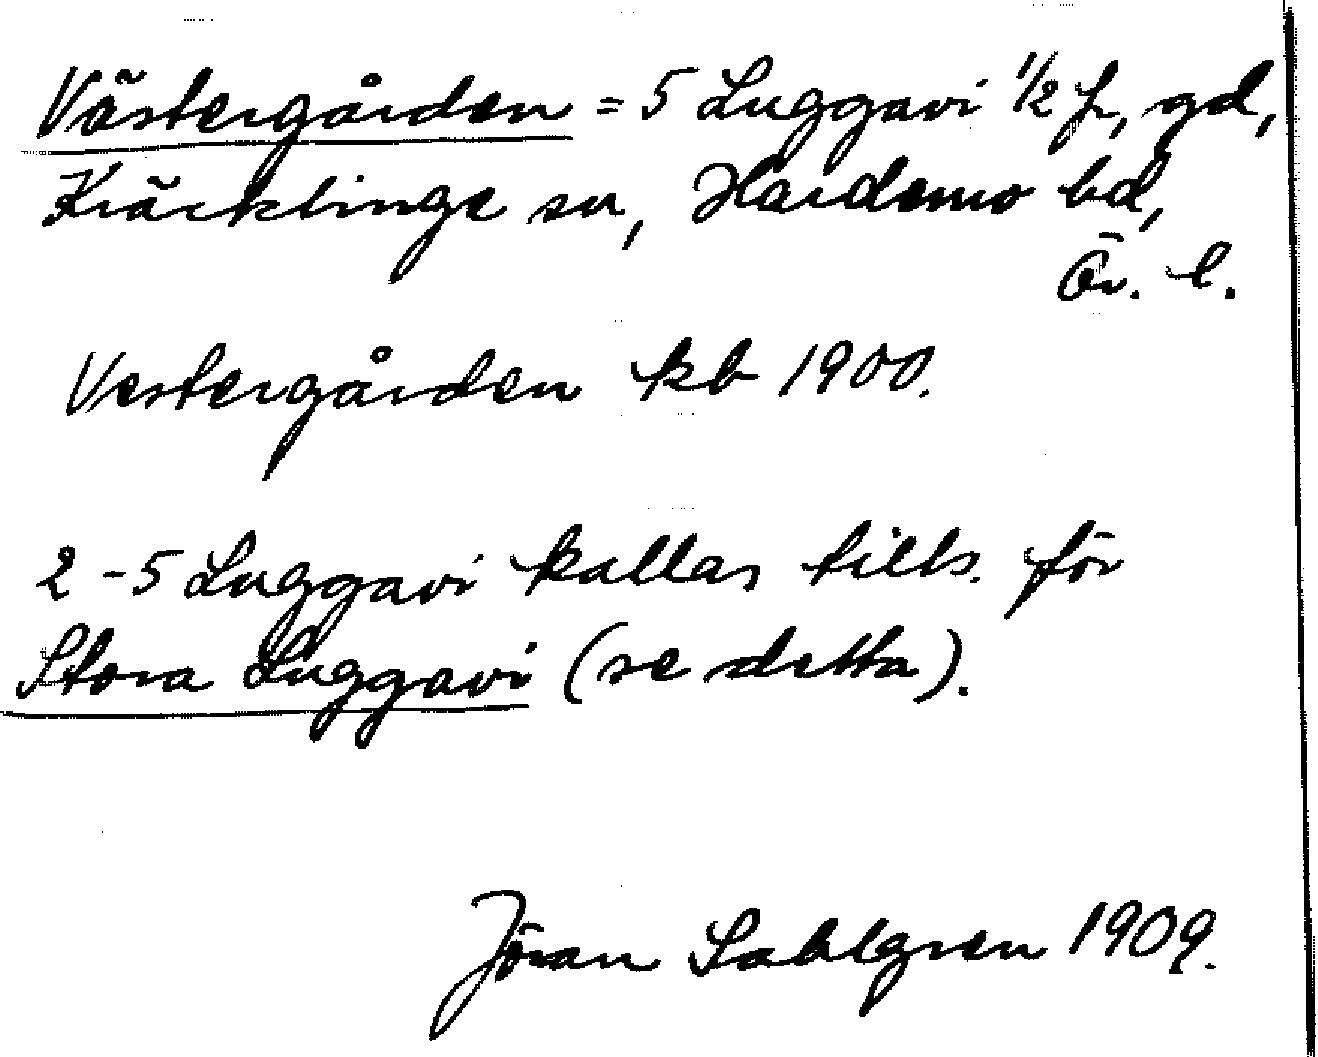 Västergården = 5 Luggavi 1/2 f, gd,
Kräcklinge sn, Hardemo hd,
Ör. l.
Vestergården kb 1900.
2-5 Luggavi kallas tills. för
Stora Luggavi (se detta).
Jöran Sahlgren 1909.